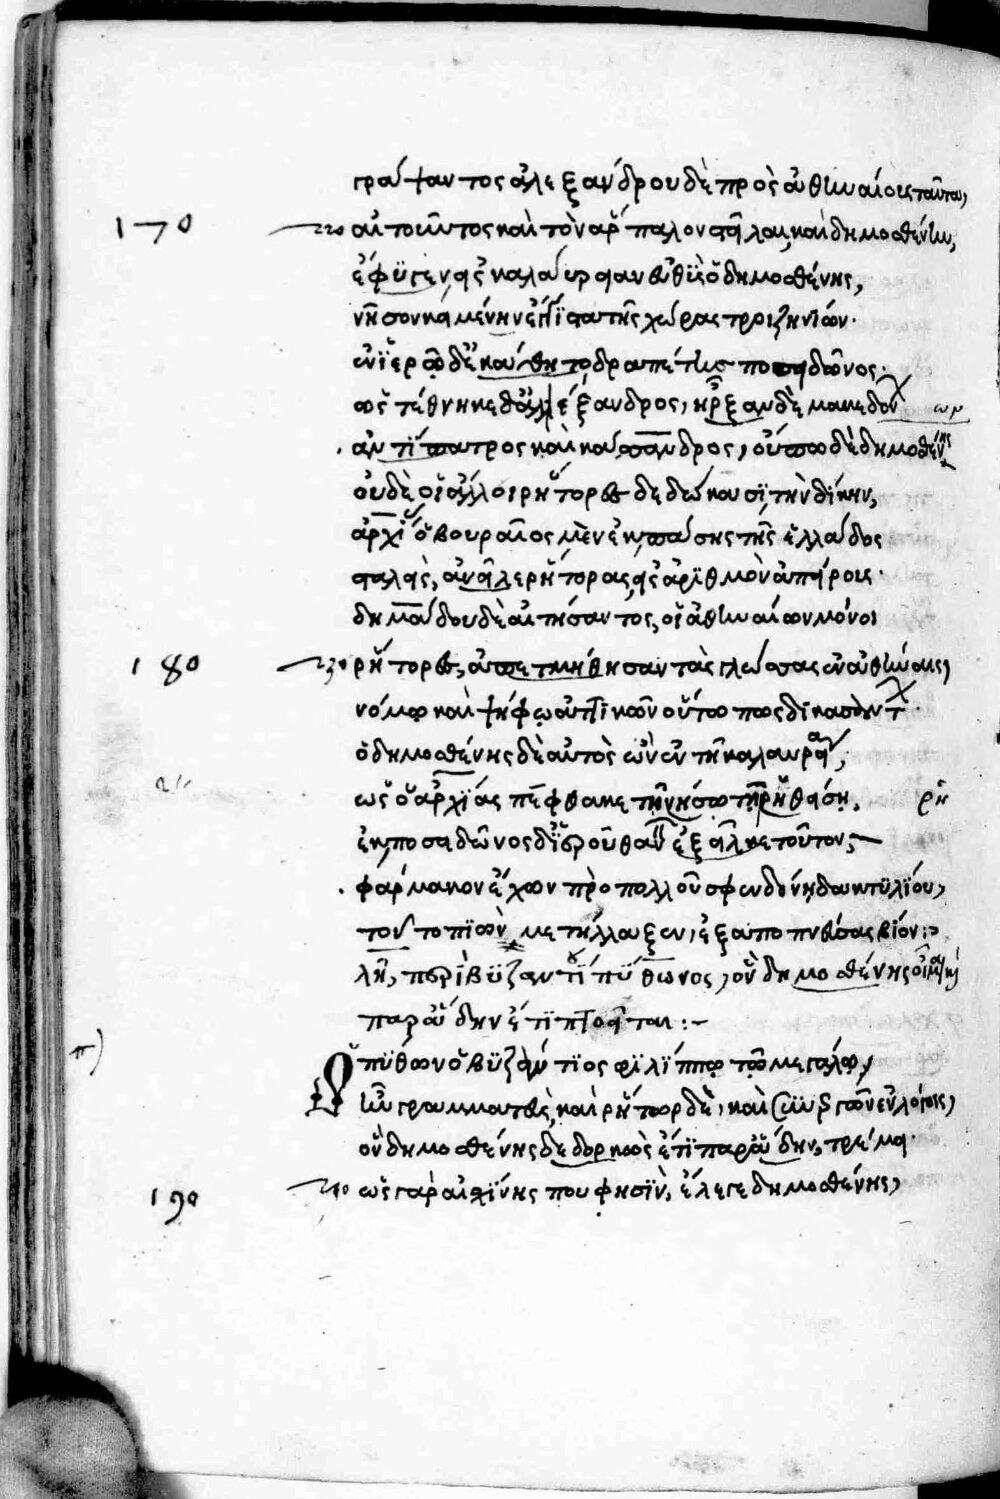 γράψαντος ἀλεξάνδρου δὲ πρὸς ἀθηναίους ταῦτα,
170 αἰτοῦντος καὶ τὸν ἅρπαλον πάλαι, καὶ δημοσθένην,
ἔφυγεν εἰς καλαύρειαν εὐθὺς ὁ δημοσθένης,
νῆσον καμένην ἐπὶ τῆς χώρας τροιζηνίων·
ἐν ἱερῷ δὲ κάθητο δραπέτης ποσειδῶνος·
ὡς τέθνηκε δ' ἀλέξανδρος, ἦρξαν δὲ μακεδόν ωρ
ἀντίπατρος καὶ κάσανδρος, οὕπω δὲ δημοσθένης
οὐδὲ οἱ ἄλλοι ῥήτορες δεδώκασι τὴν δίκην,
ἀρχίας ὁ θουραῖος μὲν ἐκ πάσης τῆς ἑλλάδος
σταλεὶς, ἀνεῖλε ῥήτορας εἰς ἀριθμὸν ἀπείρους·
δημάδου δὲ αἰτήσαντος, οἱ ἀθηναίων μόνοι
180 ῥήτορες, ἀπετμήθησαν τὰς γλώσσας ἐν ἀθήναις,
νόμῳ καὶ ψήφῳ ἀττικῶν οὕτω πως δικασάντων·
ὁ δημοσθένης δὲ αὐτὸς ὢν ἐν τῇ καλαυρεία,
ὡς ὁ ἀρχίας πέφθακε τῇ νήσῳ τῇ ῥηθείσῃ. ρη
ἐκ ποσειδῶνος δ' ἱεροῦ θανεῖν ἐξεῖλκε τοῦτον,
φάρμακον ἔχων πρὸ πολλοῦ σφενδόνῃ δακτυλίου,
τοῦτο πιὼν μετήλλαξεν, ἐξαποπνεύσας βίον:
περὶ βυζαντίου πύθωνος, οὗ δημοσθένης
παρῳδὴν ἔτι πεποίηται:
π) Ὁ πύθων ὁ βυζάντιος φιλίππῳ τῷ μεγάλῳ,
ἦν γραμματεὺς, καὶ ῥήτωρ δὲ, καὶ τῶν εὐλόγοις,
οὗ δημοσθένης δεδορκὼς ἔτι παρῳδὴν, τρέμει·
190 ὡς γὰρ αἰσχίνης που φησὶν, ἔλεγε δημοσθένης,